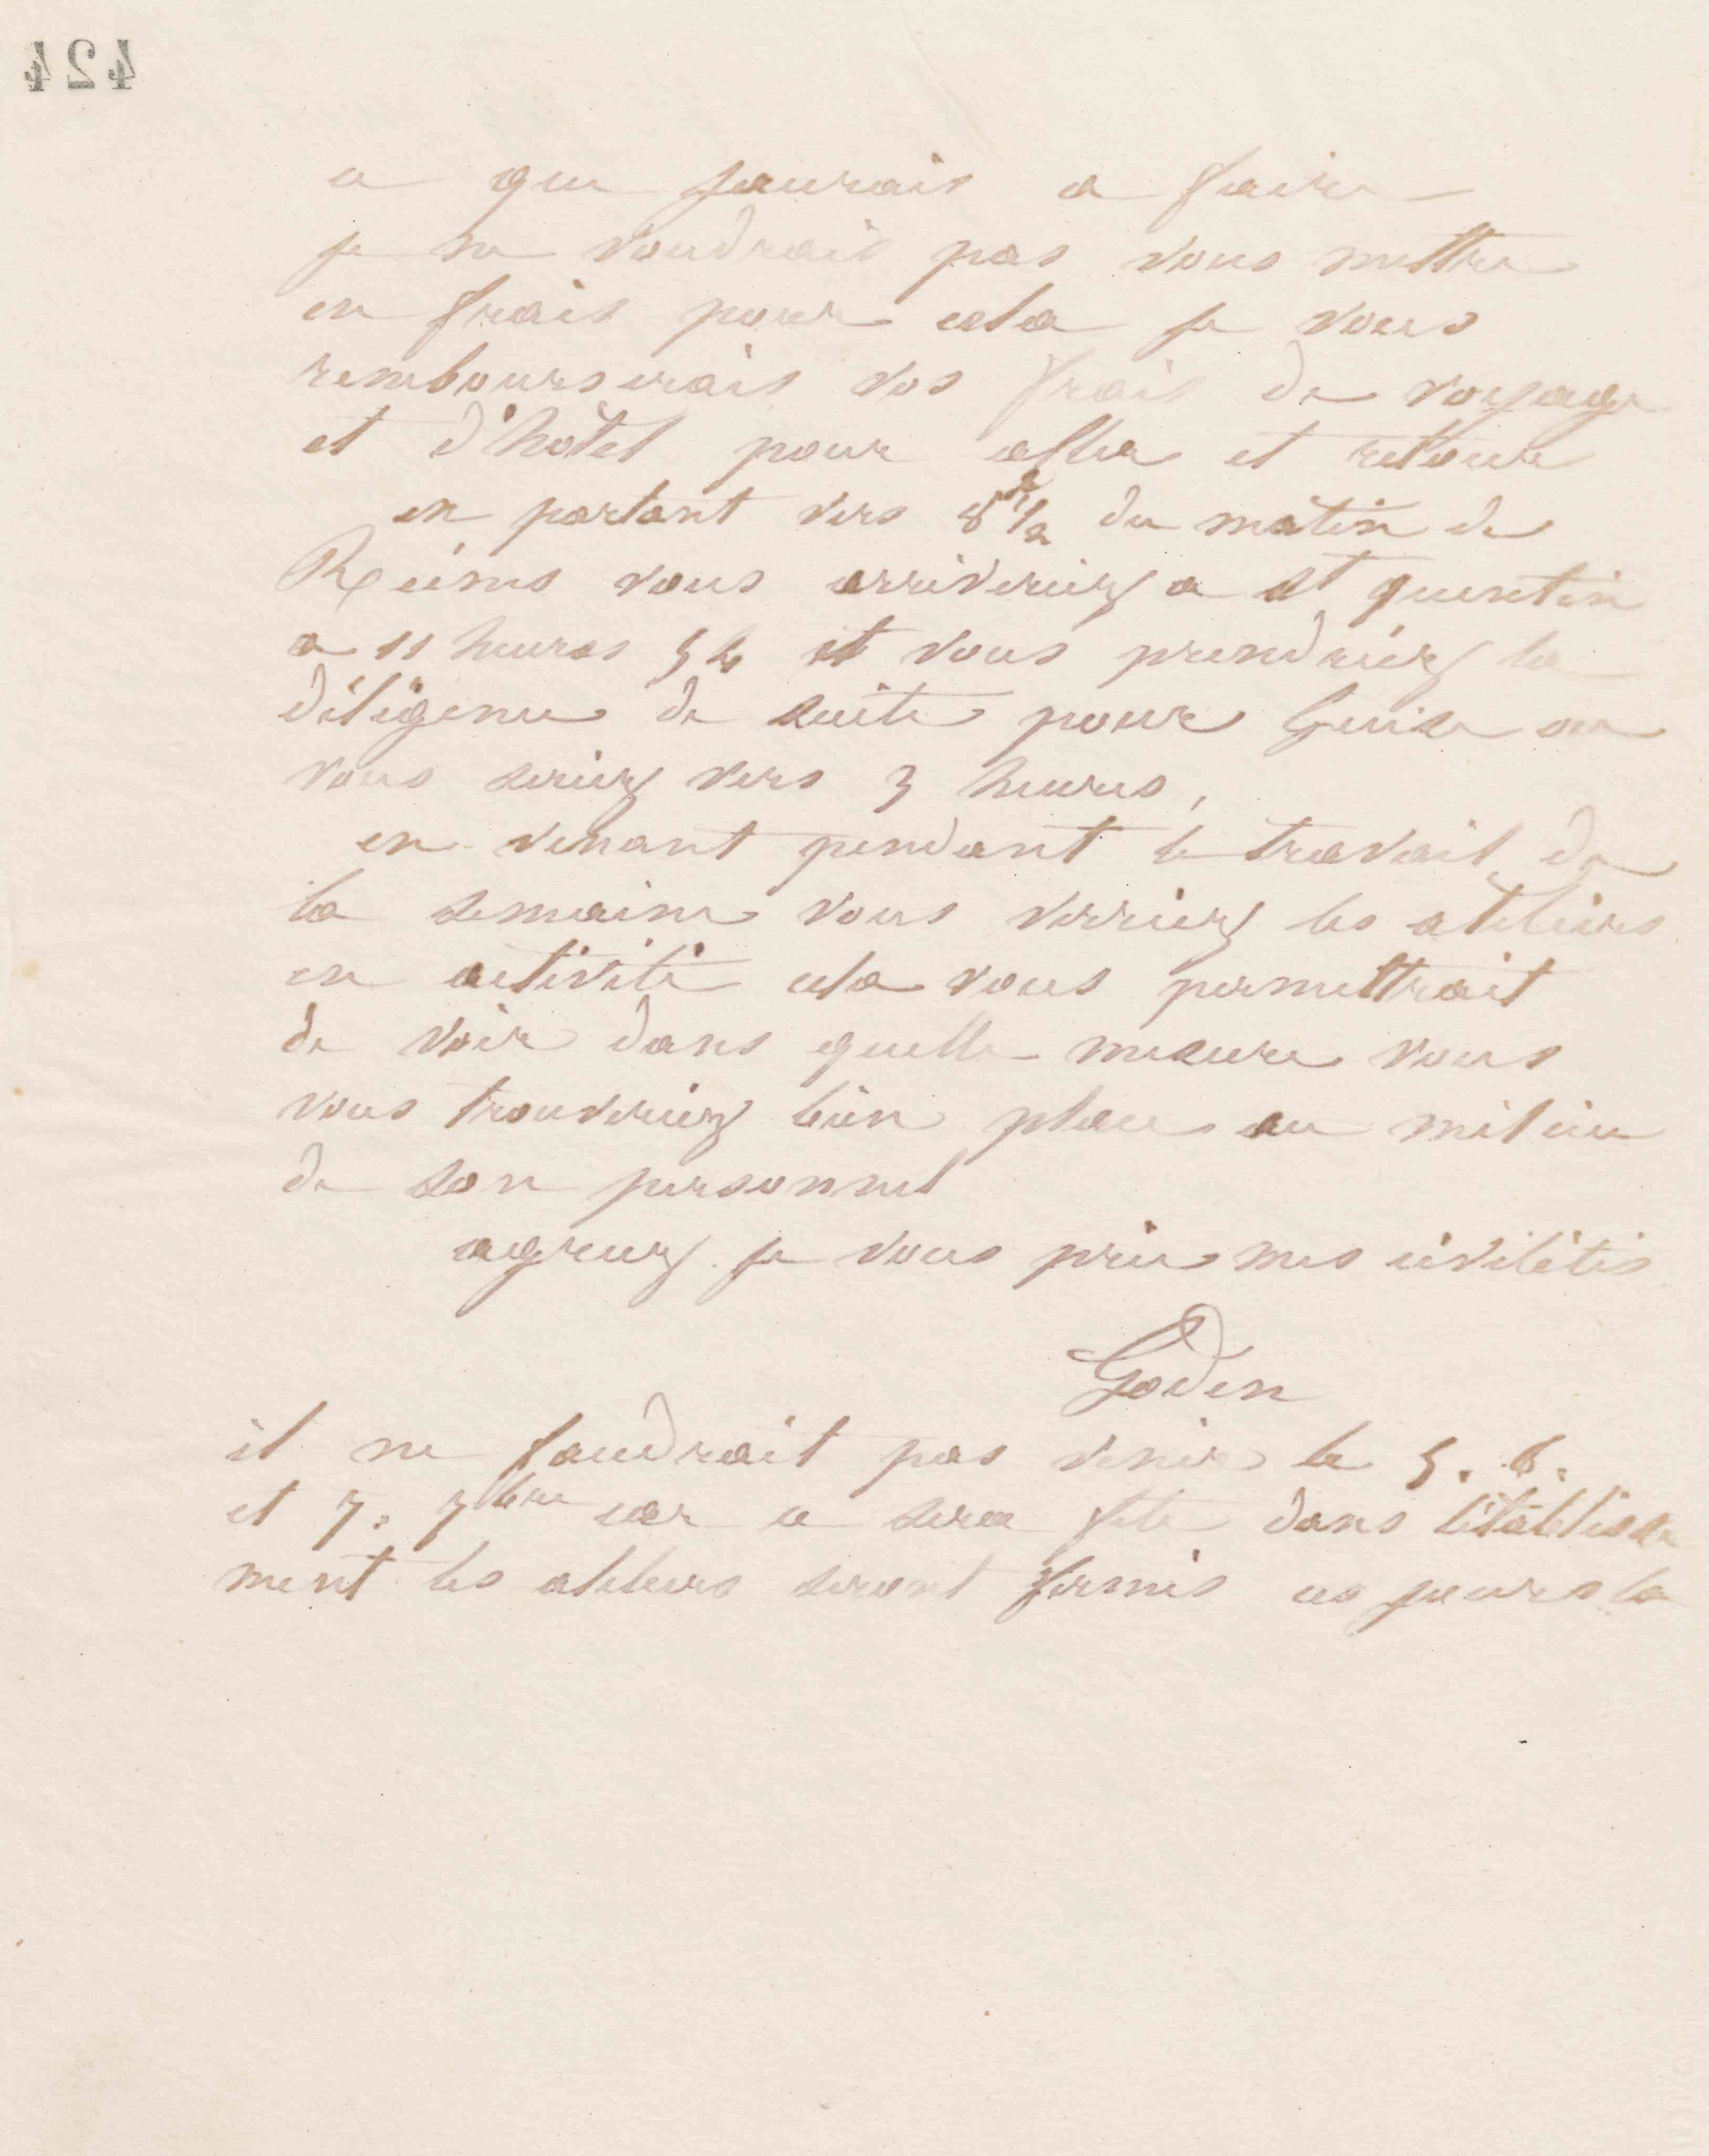 424
ce que j'aurais a faire
je ne voudrais pas vous mettre
en frais pour cela je vous
rembourserais vos frais de voyage
et d'hôtel pour aller et retour
en partant vers 8h 1/2 du matin de
Reims vous arriveriez a St quentin
a 11 heures 54 et vous prendriez la
diligence de suite pour Guise ou
vous seriez vers 3 heures,
en venant pendant le travail de
la semaine vous verriez les ateliers
en activité cela vous permettrait
de voir dans quelle mesure vous
vous trouveriez bien place au milieu
de son personnel
agreez je vous prie mes civilités
Godin
il ne faudrait pas venir le 5. 6.
et 7. 7bre car ce sera fete dans l'établisse
ment les ateliers seront fermés ces jours la